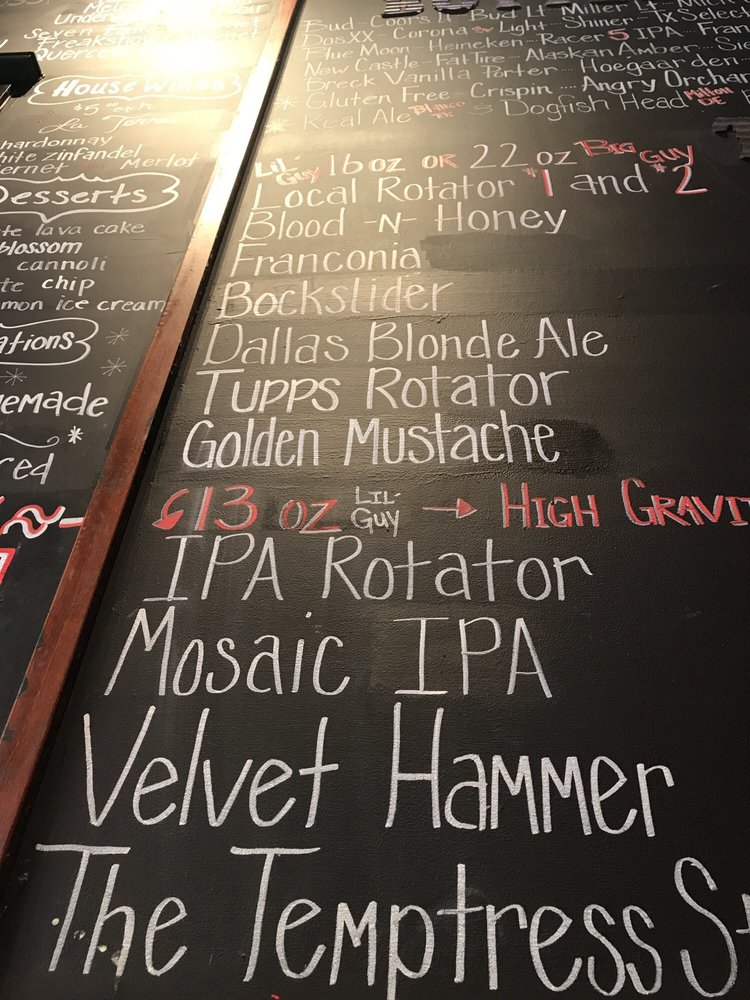 Under
Seven
Freakshow
House Wines
$5.00 each
hardonnay
hite zinfandel
ernet Merlot
Desserts
te lava cake
blossom
cannoli
te chip
mon ice cream
ations
emade
ced
Bud - Coors Lt - Bud Lt - Miller Lt - Mich
Dos XX - Corona or Light - Shiner - Tx Select
Blue Moon - Heineken - Racer 5 IPA - Fran
New Castle - Fat Tire - Alaskan Amber - Si
Breck Vanilla Porter - Hoegaarden
Gluten Free - Crispin ... Angry Orchar
Real Ale Blanco TX Dogfish Head Milton DE
Lil' Guy 16 oz or 22 oz Big Guy
Local Rotator #1 and #2
Blood -N- Honey
Franconia
Bockslider
Dallas Blonde Ale
Tupps Rotator
Golden Mustache
13 oz Lil' Guy → High Gravi
IPA Rotator
Mosaic IPA
Velvet Hammer
The Temptress St